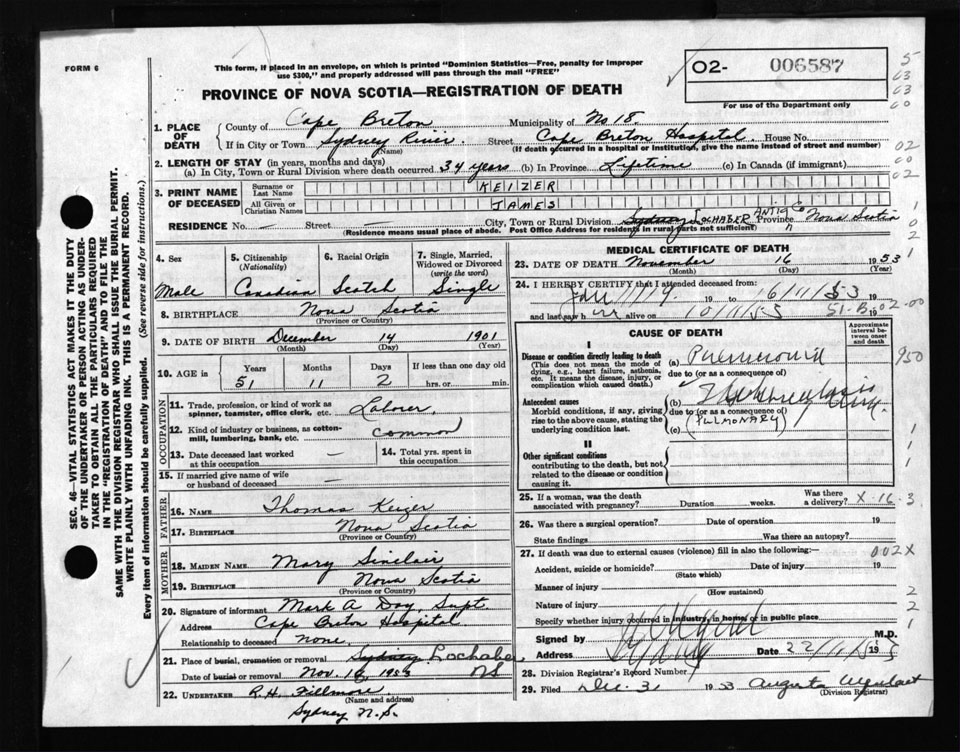 FORM 6
This form, if placed in an envelope, on which is printed "Dominion Statistics—Free, penalty for improper
use $300," and properly addressed will pass through the mail "FREE"
O2- 006587
For use of the Department only
PROVINCE OF NOVA SCOTIA—REGISTRATION OF DEATH
5
63
63
60
02
60
02
1. PLACE OF DEATH
County of Cape Breton Municipality of No 18.
If in City or Town Sydney River Street Cape Breton Hospital House No.
(Name) (If death occurred in a hospital or institution, give the name instead of street and number)
2. LENGTH OF STAY (in years, months and days)
(a) In City, Town or Rural Division where death occurred 34 years (b) In Province Lifetime (c) In Canada (if immigrant)
3. PRINT NAME OF DECEASED
Surname or Last Name KEIZER
All Given or Christian Names JAMES
RESIDENCE No. — Street — City, Town or Rural Division Sydney LOCHABER ANTIG Co Province Nova Scotia
(Residence means usual place of abode. Post Office Address for residents in rural parts not sufficient)
1
0
2
4. Sex Male
5. Citizenship (Nationality) Canadian
6. Racial Origin Scotch
7. Single, Married, Widowed or Divorced (write the word) Single
8. BIRTHPLACE Nova Scotia
(Province or Country)
9. DATE OF BIRTH December 14 1901
(Month) (Day) (Year)
10. AGE in Years 51 Months 11 Days 2 If less than one day old hrs. or min.
OCCUPATION
11. Trade, profession, or kind of work as spinner, teamster, office clerk, etc. Laborer,
12. Kind of industry or business, as cotton-mill, lumbering, bank, etc. Common
13. Date deceased last worked at this occupation —
14. Total yrs. spent in this occupation
15. If married give name of wife or husband of deceased —
FATHER
16. NAME Thomas Keizer
17. BIRTHPLACE Nova Scotia
(Province or Country)
MOTHER
18. MAIDEN NAME Mary Sinclair
19. BIRTHPLACE Nova Scotia
(Province or Country)
20. Signature of informant Mark A Day, Supt.
Address Cape Breton Hospital
Relationship to deceased None.
21. Place of burial, cremation or removal Sydney Lochaber
Date of burial or removal Nov. 16, 1953 NS
22. UNDERTAKER R.H. Fillmore
(Name and address)
Sydney N.S.
MEDICAL CERTIFICATE OF DEATH
23. DATE OF DEATH November 16 1953
(Month) (Day) (Year)
24. I HEREBY CERTIFY that I attended deceased from:
19 to 16/11/53 19
and last saw h alive on 19
51-B 02-00
CAUSE OF DEATH
Approximate interval between onset and death
I
Disease or condition directly leading to death
(This does not mean the mode of dying, e.g., heart failure, asthenia, etc. It means the disease, injury, or complication which caused death.)
(a) Pneumonia
due to (or as a consequence of)
950
Antecedent causes
Morbid conditions, if any, giving rise to the above cause, stating the underlying condition last.
(b) Tuberculosis
due to (or as a consequence of)
(c) (PULMONARY)
II
Other significant conditions
contributing to the death, but not related to the disease or condition causing it.
1
1
1
25. If a woman, was the death associated with pregnancy? Duration weeks. Was there a delivery? X-16-3
26. Was there a surgical operation? Date of operation 19
State findings Was there an autopsy?
27. If death was due to external causes (violence) fill in also the following:— 002X
Accident, suicide or homicide? Date of injury 19
(State which)
Manner of injury
(How sustained)
Nature of injury
Specify whether injury occurred in industry, in home, or in public place
2
2
1
Signed by M.D.
Address Sydney Date 22/11/ 19
28. Division Registrar's Record Number
29. Filed Dec. 3 1953 Augusta
(Division Registrar)
SEC. 46—VITAL STATISTICS ACT MAKES IT THE DUTY
OF THE UNDERTAKER OR PERSON ACTING AS UNDER-
TAKER TO OBTAIN ALL THE PARTICULARS REQUIRED
IN THE "REGISTRATION OF DEATH" AND TO FILE THE
SAME WITH THE DIVISION REGISTRAR WHO SHALL ISSUE THE BURIAL PERMIT.
WRITE PLAINLY WITH UNFADING INK. THIS IS A PERMANENT RECORD.
Every item of information should be carefully supplied. (See reverse side for instructions.)